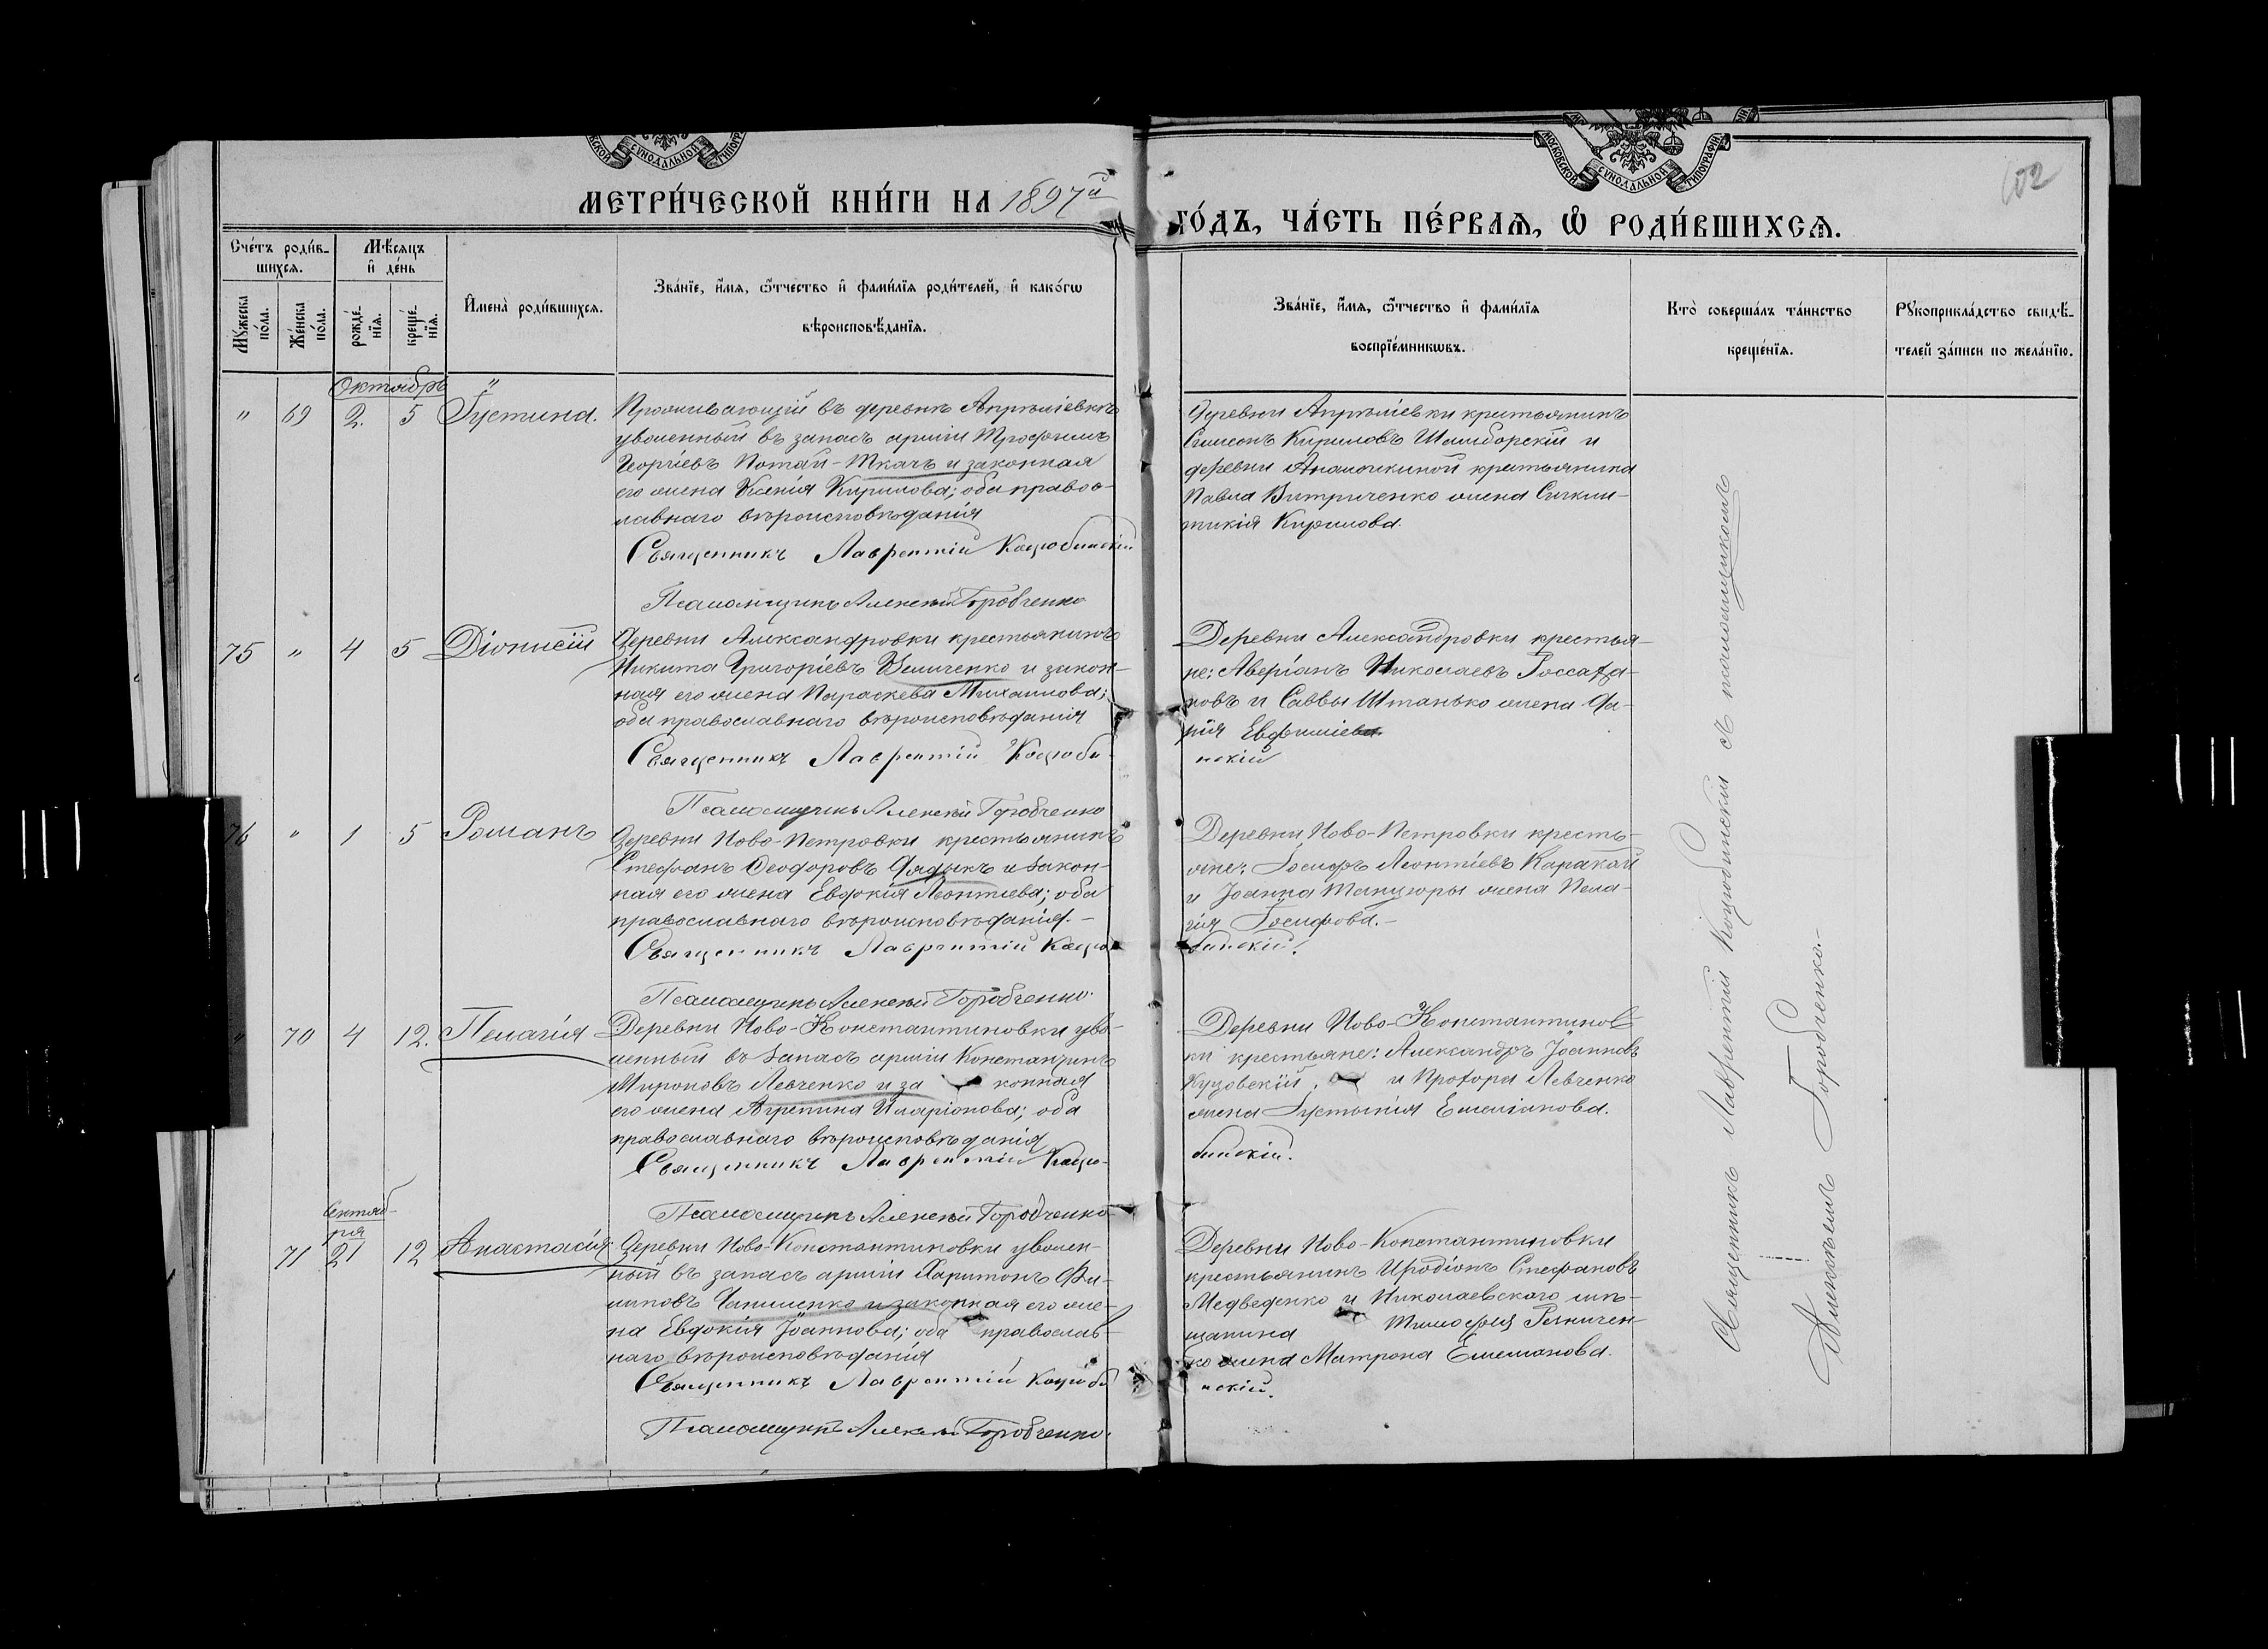 МЕТРИ́ЧЕСКОЙ КНИ́ГИ НА 1897й
ГО́ДЪ, ЧА́СТЬ ПЕ́РВАѦ, Ѡ҆ РОДИ́ВШИХСѦ.
МОСКОВСКОЙ СѴНОДАЛЬНОЙ ТИПОГРАФІИ
102
Сче́тъ роди́в-
шихсѧ.
Мѣ́сѧцъ
и҆ де́нь
Мꙋ́жеска
по́ла.
Же́нска
по́ла.
рожде́-
нїѧ.
креще́-
нїѧ.
И҆мена̀ роди́вшихсѧ.
Зва́нїе, и҆́мѧ, ѻ҆́тчество и҆ фами́лїѧ роди́телей, и҆ како́гѡ
вѣроисповѣ́данїѧ.
Зва́нїе, и҆́мѧ, ѻ҆́тчество и҆ фами́лїѧ
воспрїе́мникѡвъ.
Кто̀ соверша́лъ та́инство
креще́нїѧ.
Рꙋкоприкла́дство свидѣ́-
телей за́писи по жела́нїю.
Октябрь
" 69 2. 5 Іустина.
Проживающій въ деревнѣ Апрѣліевкѣ
уволенный въ запасъ арміи Трофимъ
Георгіевъ Потай-Ткачъ и законная
его жена Ксенія Кирилова; оба правос-
лавнаго вѣроисповѣданія
Священникъ Лаврентій Коцюбинскій
Псаломщикъ Алексѣй Горобченко
Деревни Апрѣліевки крестьянинъ
Симеонъ Кириловъ Шамборскій и
деревни Анамочкиной крестьянина
Павла Витриченко жена Синкли-
тикія Кирилова.
75 " 4 5 Діонисій
Деревни Александровки крестьянинъ
Никита Григоріевъ Величенко и закон-
ная его жена Параскева Михаилова;
оба православнаго вѣроисповѣданія
Священникъ Лаврентій Коцюби-
Псаломщикъ Алексѣй Горобченко
Деревни Александровки крестья-
не: Аверіанъ Николаевъ Россаха-
новъ и Саввы Штанько жена Да-
рія Евфиміева
нскій
76 " 1 5 Романъ
Деревни Ново-Петровки крестьянинъ
Стефанъ Ѳеодоровъ Дядыкъ и закон-
ная его жена Евдокія Леонтіева; оба
православнаго вѣроисповѣданія.-
Священникъ Лаврентій Коцю-
Псаломщикъ Алексѣй Горобченко
Деревни Ново-Петровки кресть-
яне: Іосифъ Леонтіевъ Каракай
и Іоанна Танцюры жена Пела-
гія Іосифова.-
бинскій.
" 70 4 12. Пелагія
Деревни Ново-Константиновки уво-
ленный въ запасъ арміи Константинъ
Мироновъ Левченко и законная
его жена Агрепина Иларіонова; оба
православнаго вѣроисповѣданія
Священникъ Лаврентій Коцю-
Псаломщикъ Алексѣй Горобченко
Деревни Ново-Константинов-
ки крестьяне: Александръ Іоанновъ
Куцовскій, и Прохора Левченко
жена Іустинія Емеліанова.
бинскій.
Сентяб-
ря
71 21 12 Анастасія
Деревни Ново-Константиновки уволен-
ный въ запасъ арміи Харитонъ Фи-
липовъ Чапленко и законная его же-
на Евдокія Іоаннова; оба православ-
наго вѣроисповѣданія
Священникъ Лаврентій Коцюби
Псаломщикъ Алексѣй Горобченко.
Деревни Ново-Константиновки
крестьянинъ Иродіонъ Стефановъ
Медведенко и Николаевскаго мѣ-
щанина Тимофея Резничен-
ко жена Матрона Емеліанова.
нскій.
Священникъ Лаврентій Коцюбинскій съ псаломщикомъ
Алексѣемъ Горобченко.-